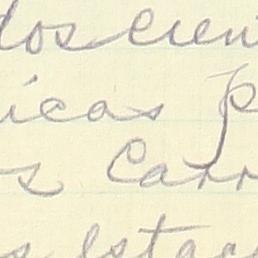 dos cien
icas p
s Carr
s esta